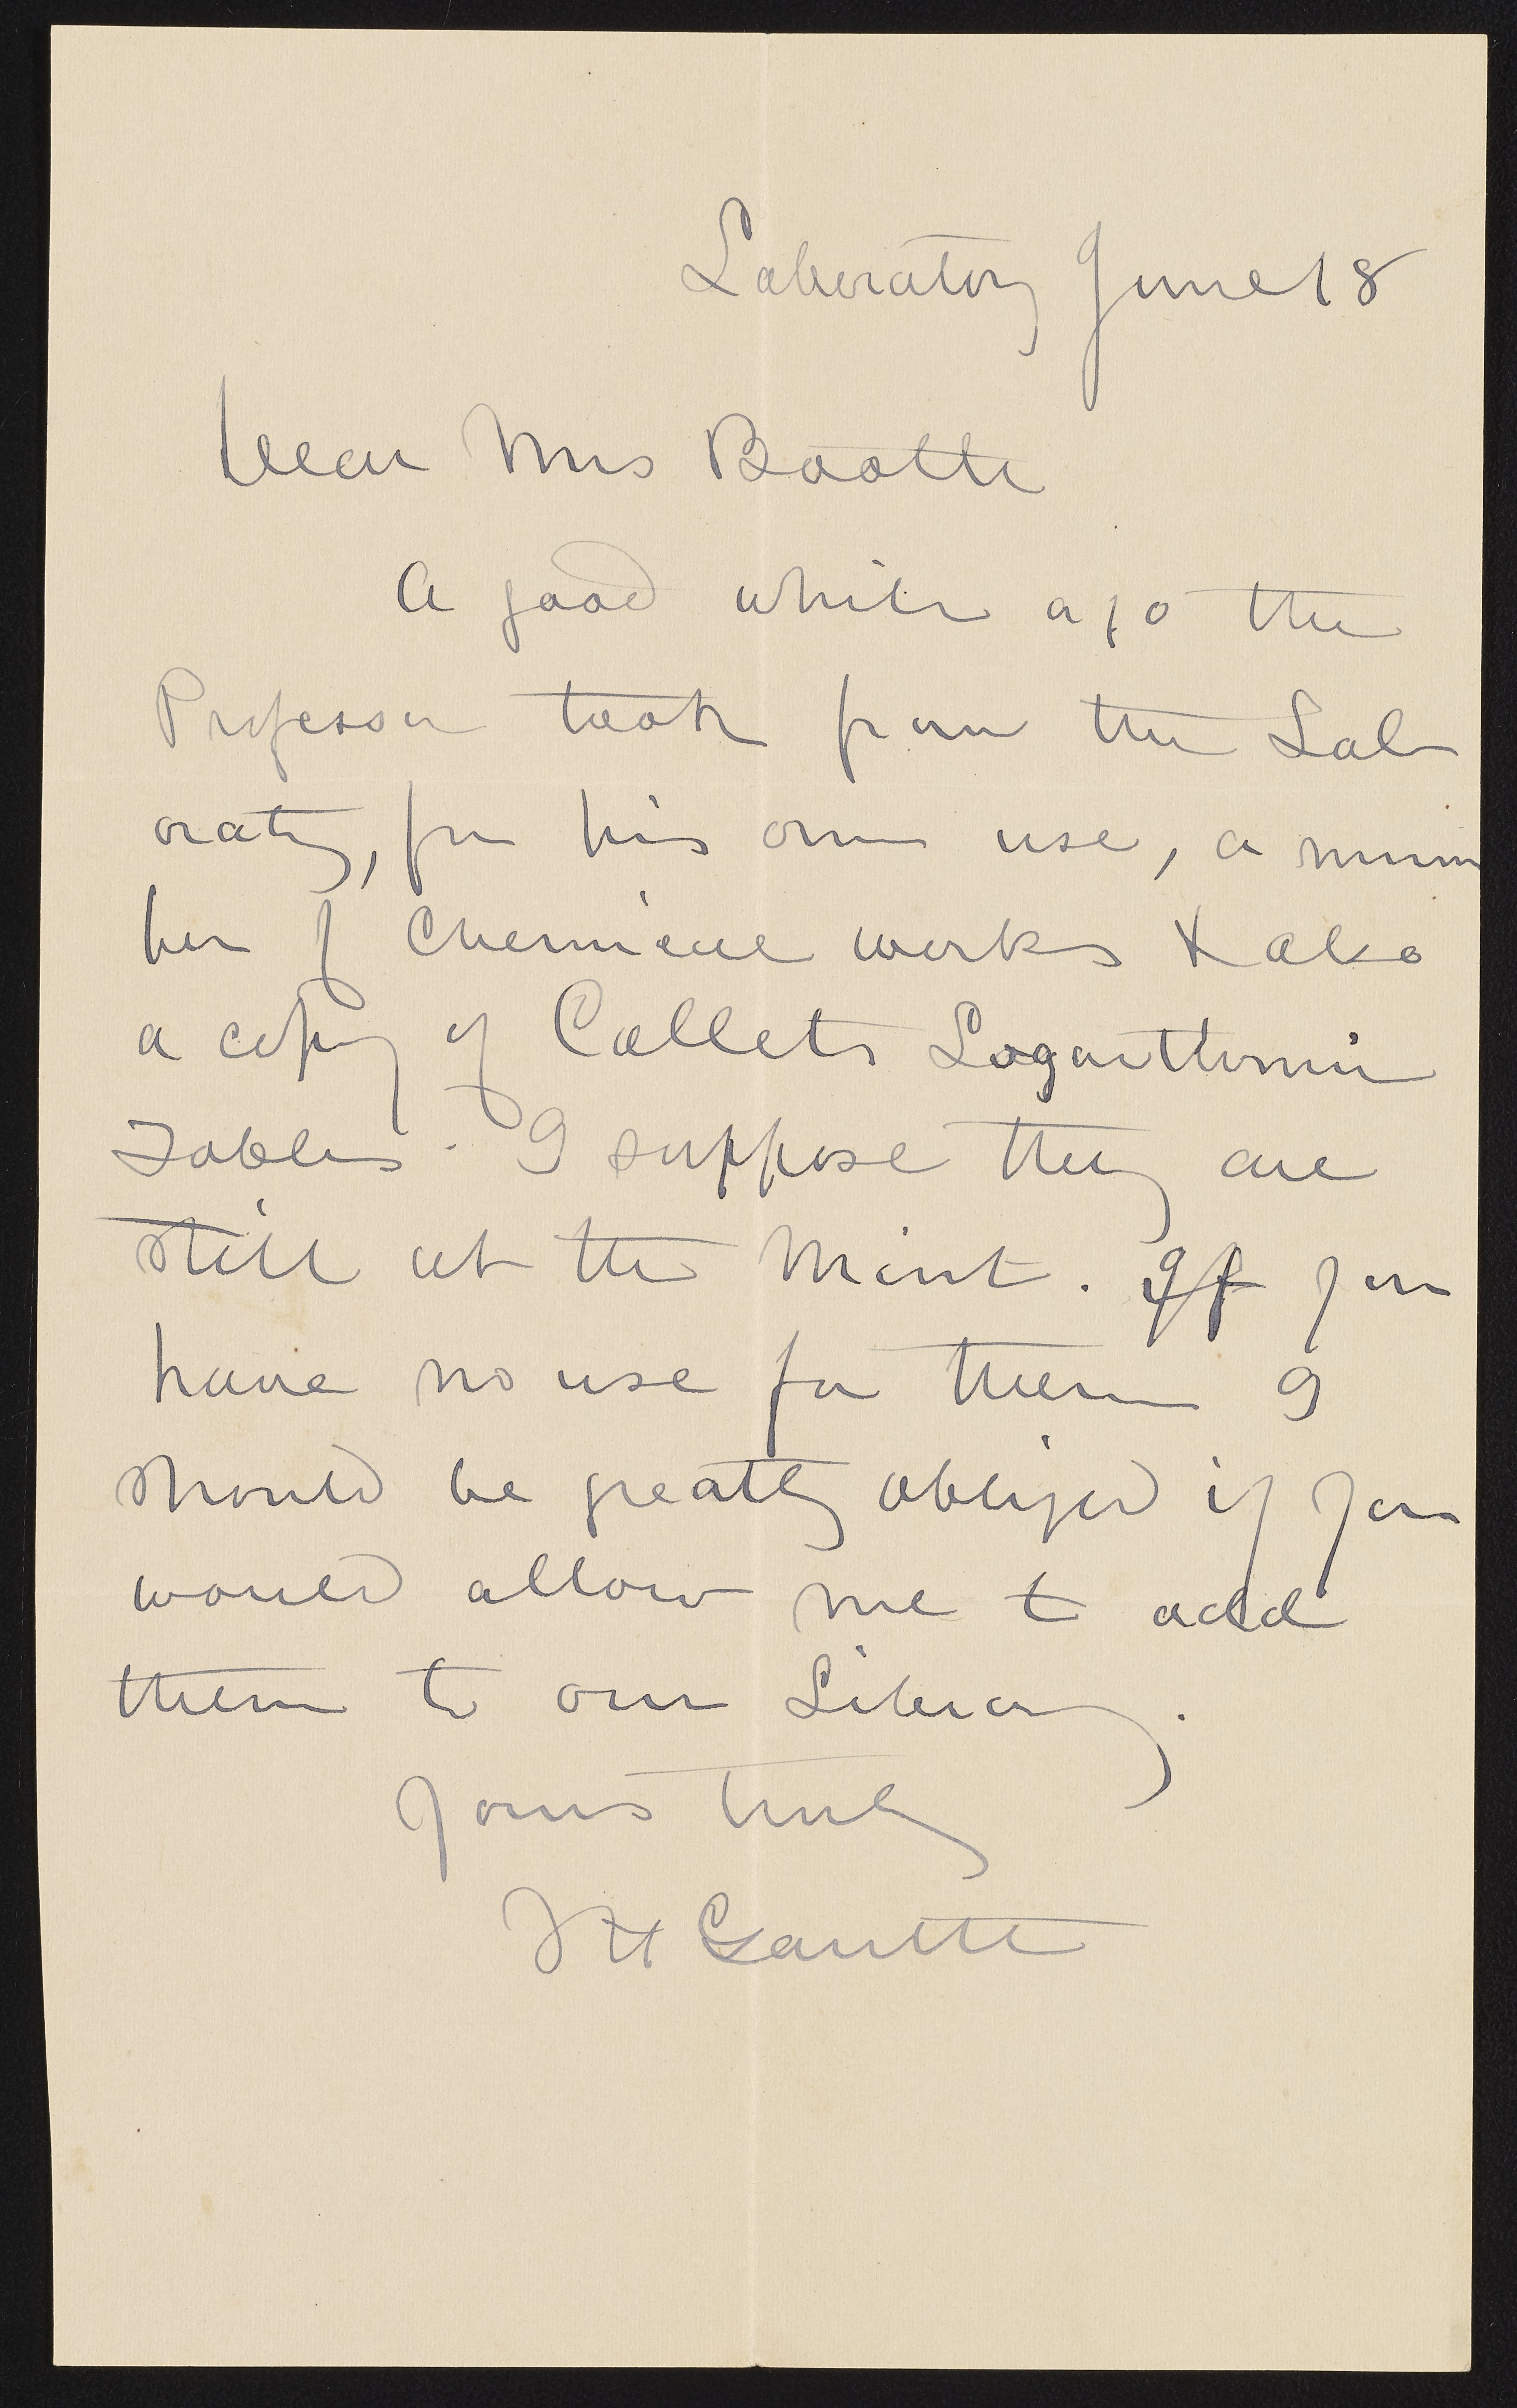 Laboratory June 18
Dear Mrs Booth
A good while ago the
Professor took from the Lab
oratory, for his own use, a num
ber of Chemical works & also
a copy of Callets Logarithmic
Tables. I suppose they are
still at the Mint. If you
have no use for them I
should be greatly obliged if you
would allow me to add
them to our Library.
Yours truly
T H Garrett